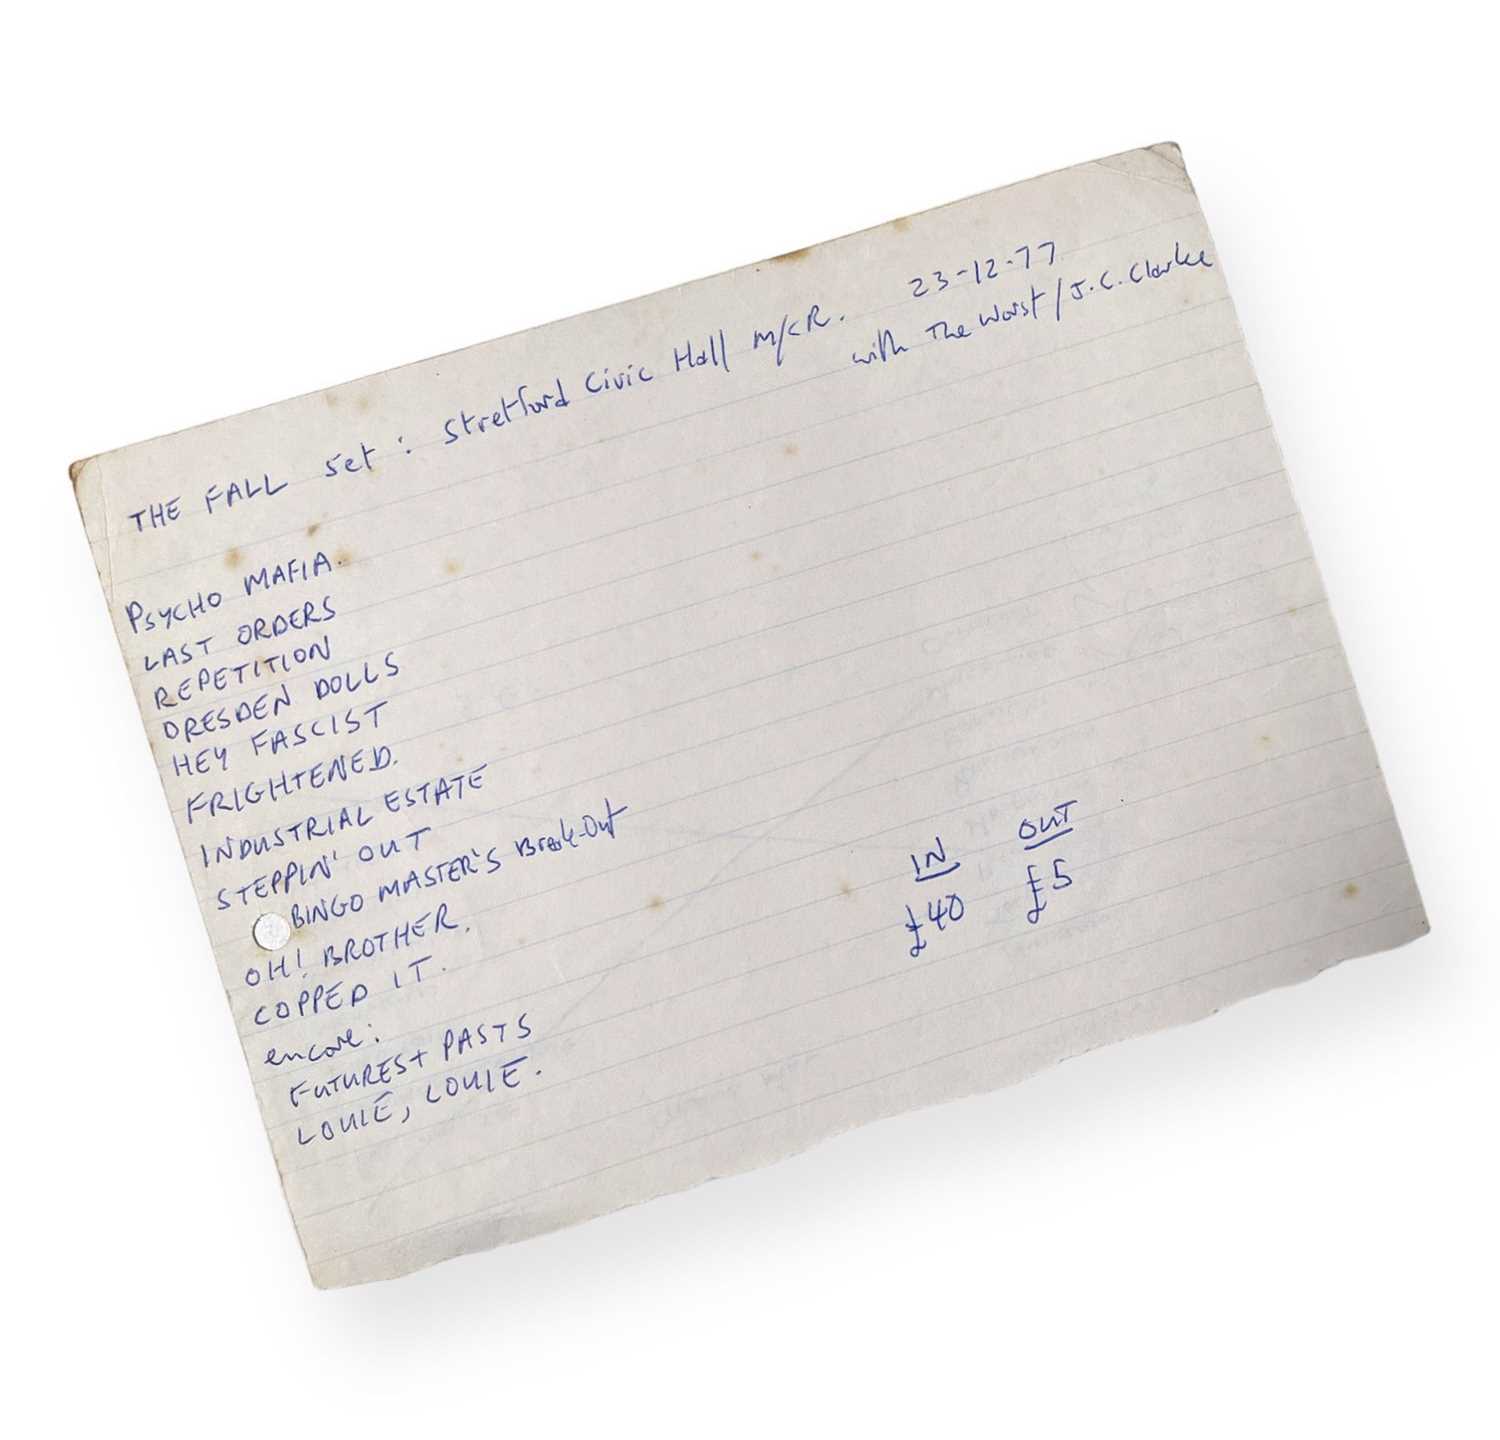 THE FALL set : Stretford Civic Hall M/CR. 23-12-77
with The Worst / J.C. Clarke
PSYCHO MAFIA.
LAST ORDERS
REPETITION
DRESDEN DOLLS
HEY FASCIST
FRIGHTENED.
INDUSTRIAL ESTATE
STEPPIN' OUT
BINGO MASTER'S Break-Out
OH! BROTHER.
COPPED IT.
encore:
FUTURES + PASTS
LOUIE, LOUIE.
IN OUT
£40 £5